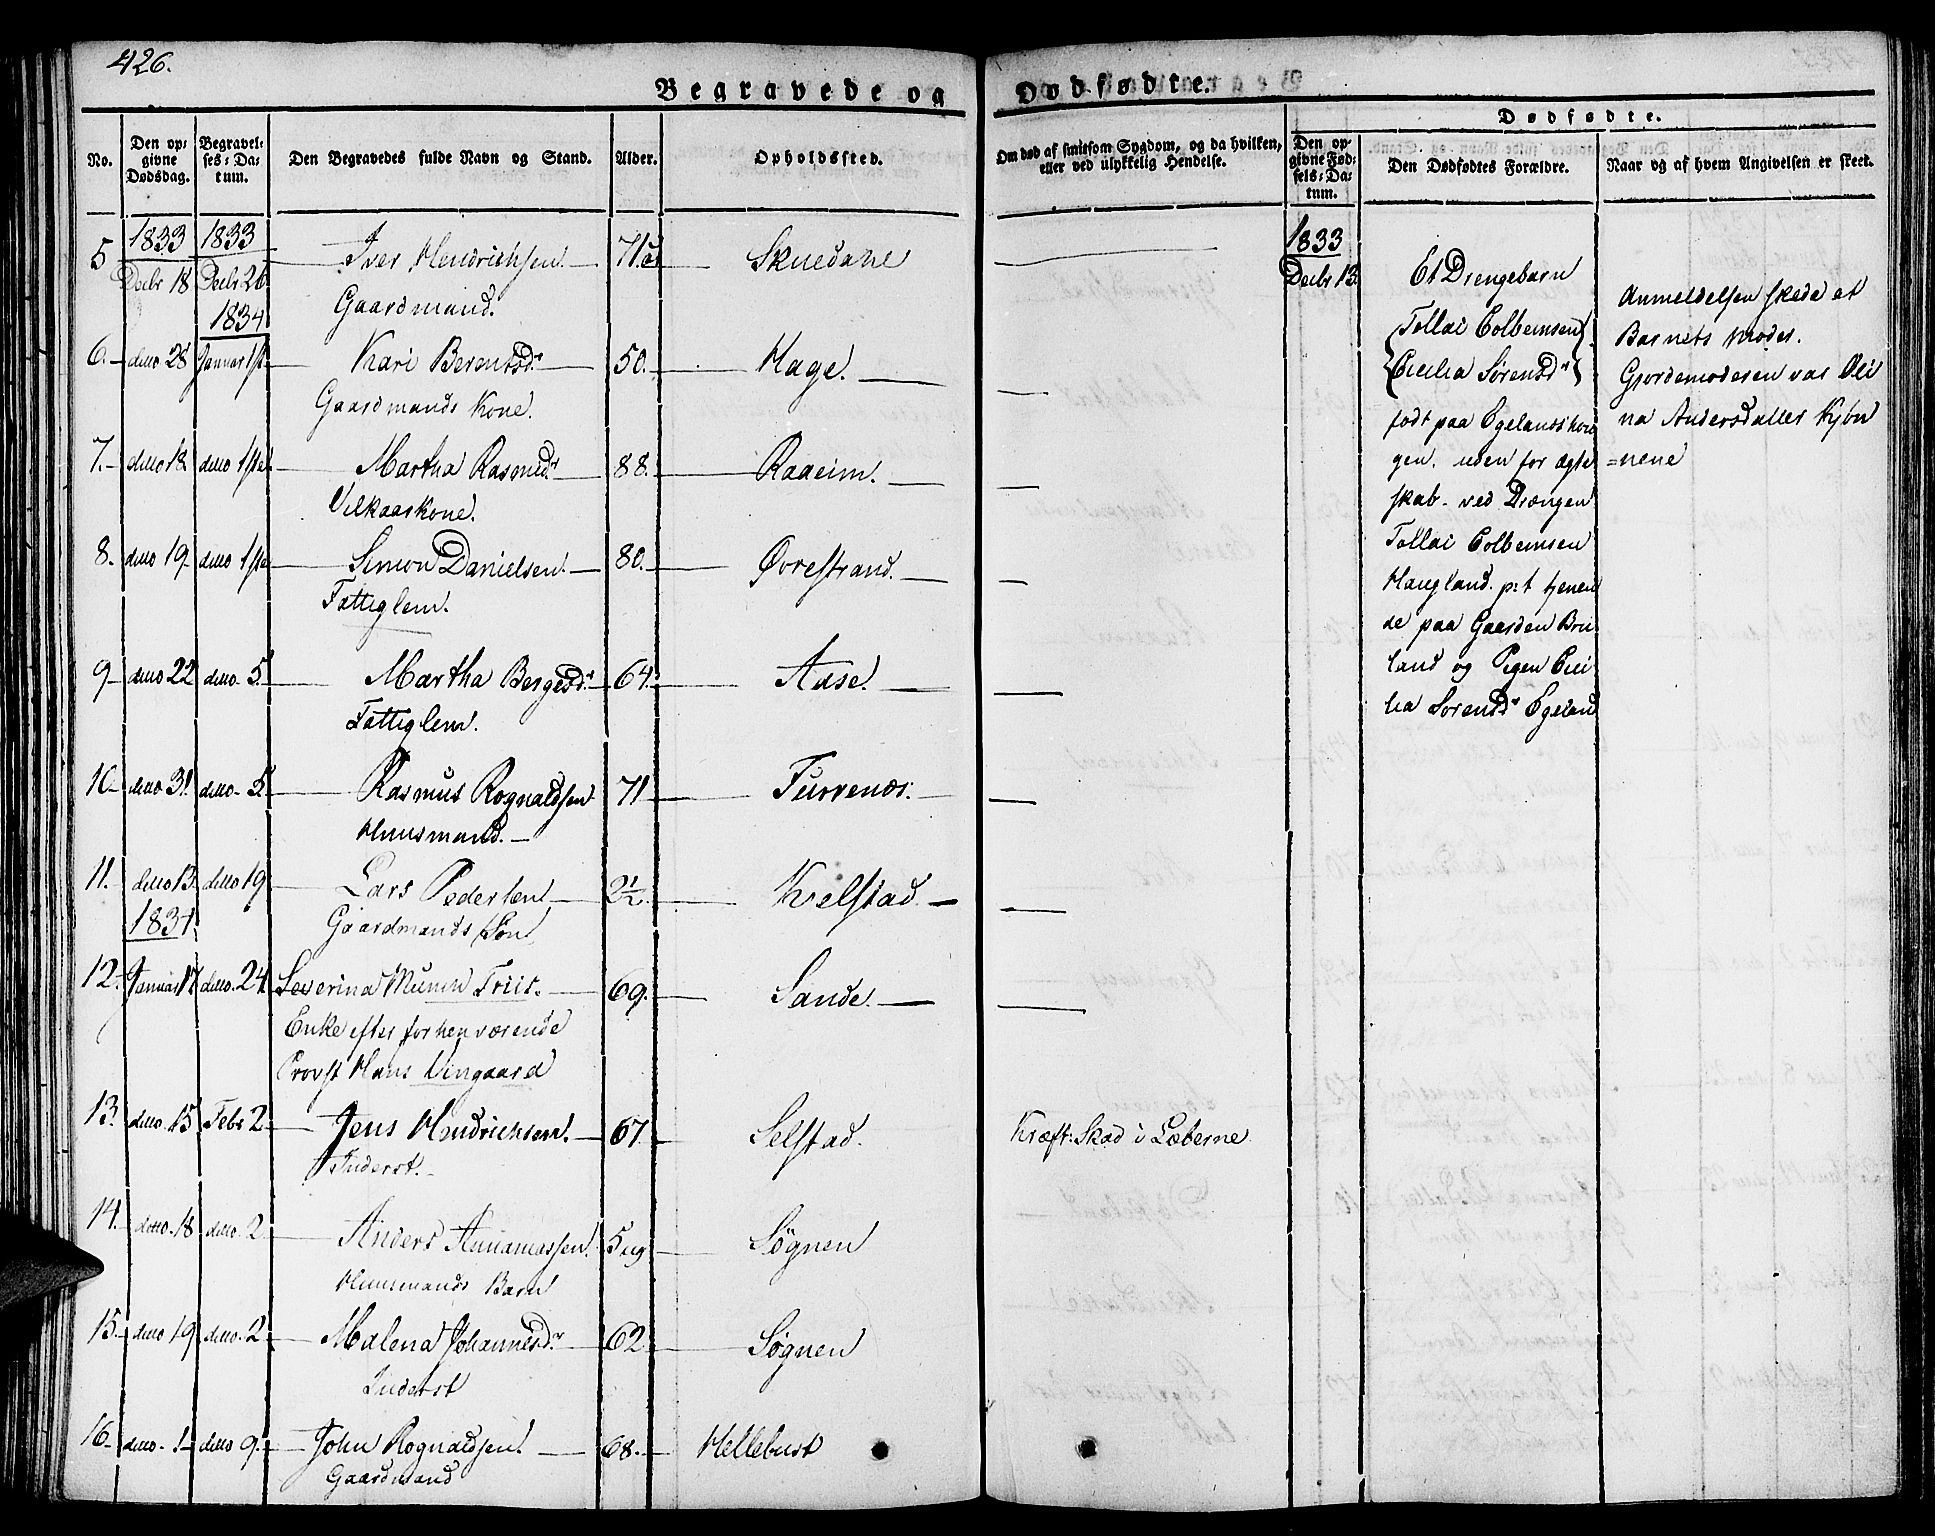 426.
Begravede og
Dødfødte.
No.
Den opgivne Dødsdag.
Begravelses-Datum.
Den Begravedes fulde Navn og Stand.
Alder.
Opholdssted.
Om død af smitsom Sygdom, og da hvilken, eller ved ulykkelig Hendelse.
Dødfødte.
Den opgivne Fødsels-Datum.
Den Dødfødtes Forældre.
Naar og af hvem Angivelsen er skeet.
1833 1833
5 Decbr 18 Decbr 26 Iver Hendrichsen 71 Skuedane
Gaardmand.
1834
6. ditto 28 Januar 1ste Kari Berentsdr 50. Hage.
Gaardmands Kone.
7. ditto 18 ditto 1ste Martha Rasmusdr 88. Raaeim.
Vilkaarskone.
8. ditto 19 ditto 1ste Simon Danielsen. 80. Øvrestrand.
Fattiglem.
9 ditto 22 ditto. 5. Martha Bergesdr 64. Aase.
Fattiglem.
10 ditto 31 ditto 5. Rasmus Rognaldsen 71 Furrenæs.
Huusmand.
11. ditto 13 ditto 19 Lars Pedersen 2½ Kvelstad.
Gaardmands Søn
1834.
12. Januar 17 ditto. 24 Severina Munch Friis. 69. Sande.
Enke efter forhenværende
Provst Hans Vingaard
13. ditto. 15 Febr 2 Jens Hendrichsen. 67. Selstad. Kræft: Skad i Læberne
Inderst.
14. ditto. 18 ditto. 2 Anders Annanassen. 5 ug Søgnen
Huusmands Barn
15. ditto 19 ditto. 2 Malena Johannesdr 62 Søgnen
Inderst
16. ditto. 1 ditto 9. John Rognaldsen 68. Hellebust
Gaardmand
1833
Decbr 13
Et Drengebarn
Tollai Colbensen
Cicilia Sørensdr
født paa Egelandshou
gen. uden for ægte
skab. ved Drængen
Tollai Colbensen
Haugland. p:t tjenen
de paa Gaarden Bru
land og Pigen Cici
lia Sørensdr Egeland
Anmeldelsen skede at
Barnets Moder.
Gjordemoderen var Oli
na Andersdatter Kjøn
=nene